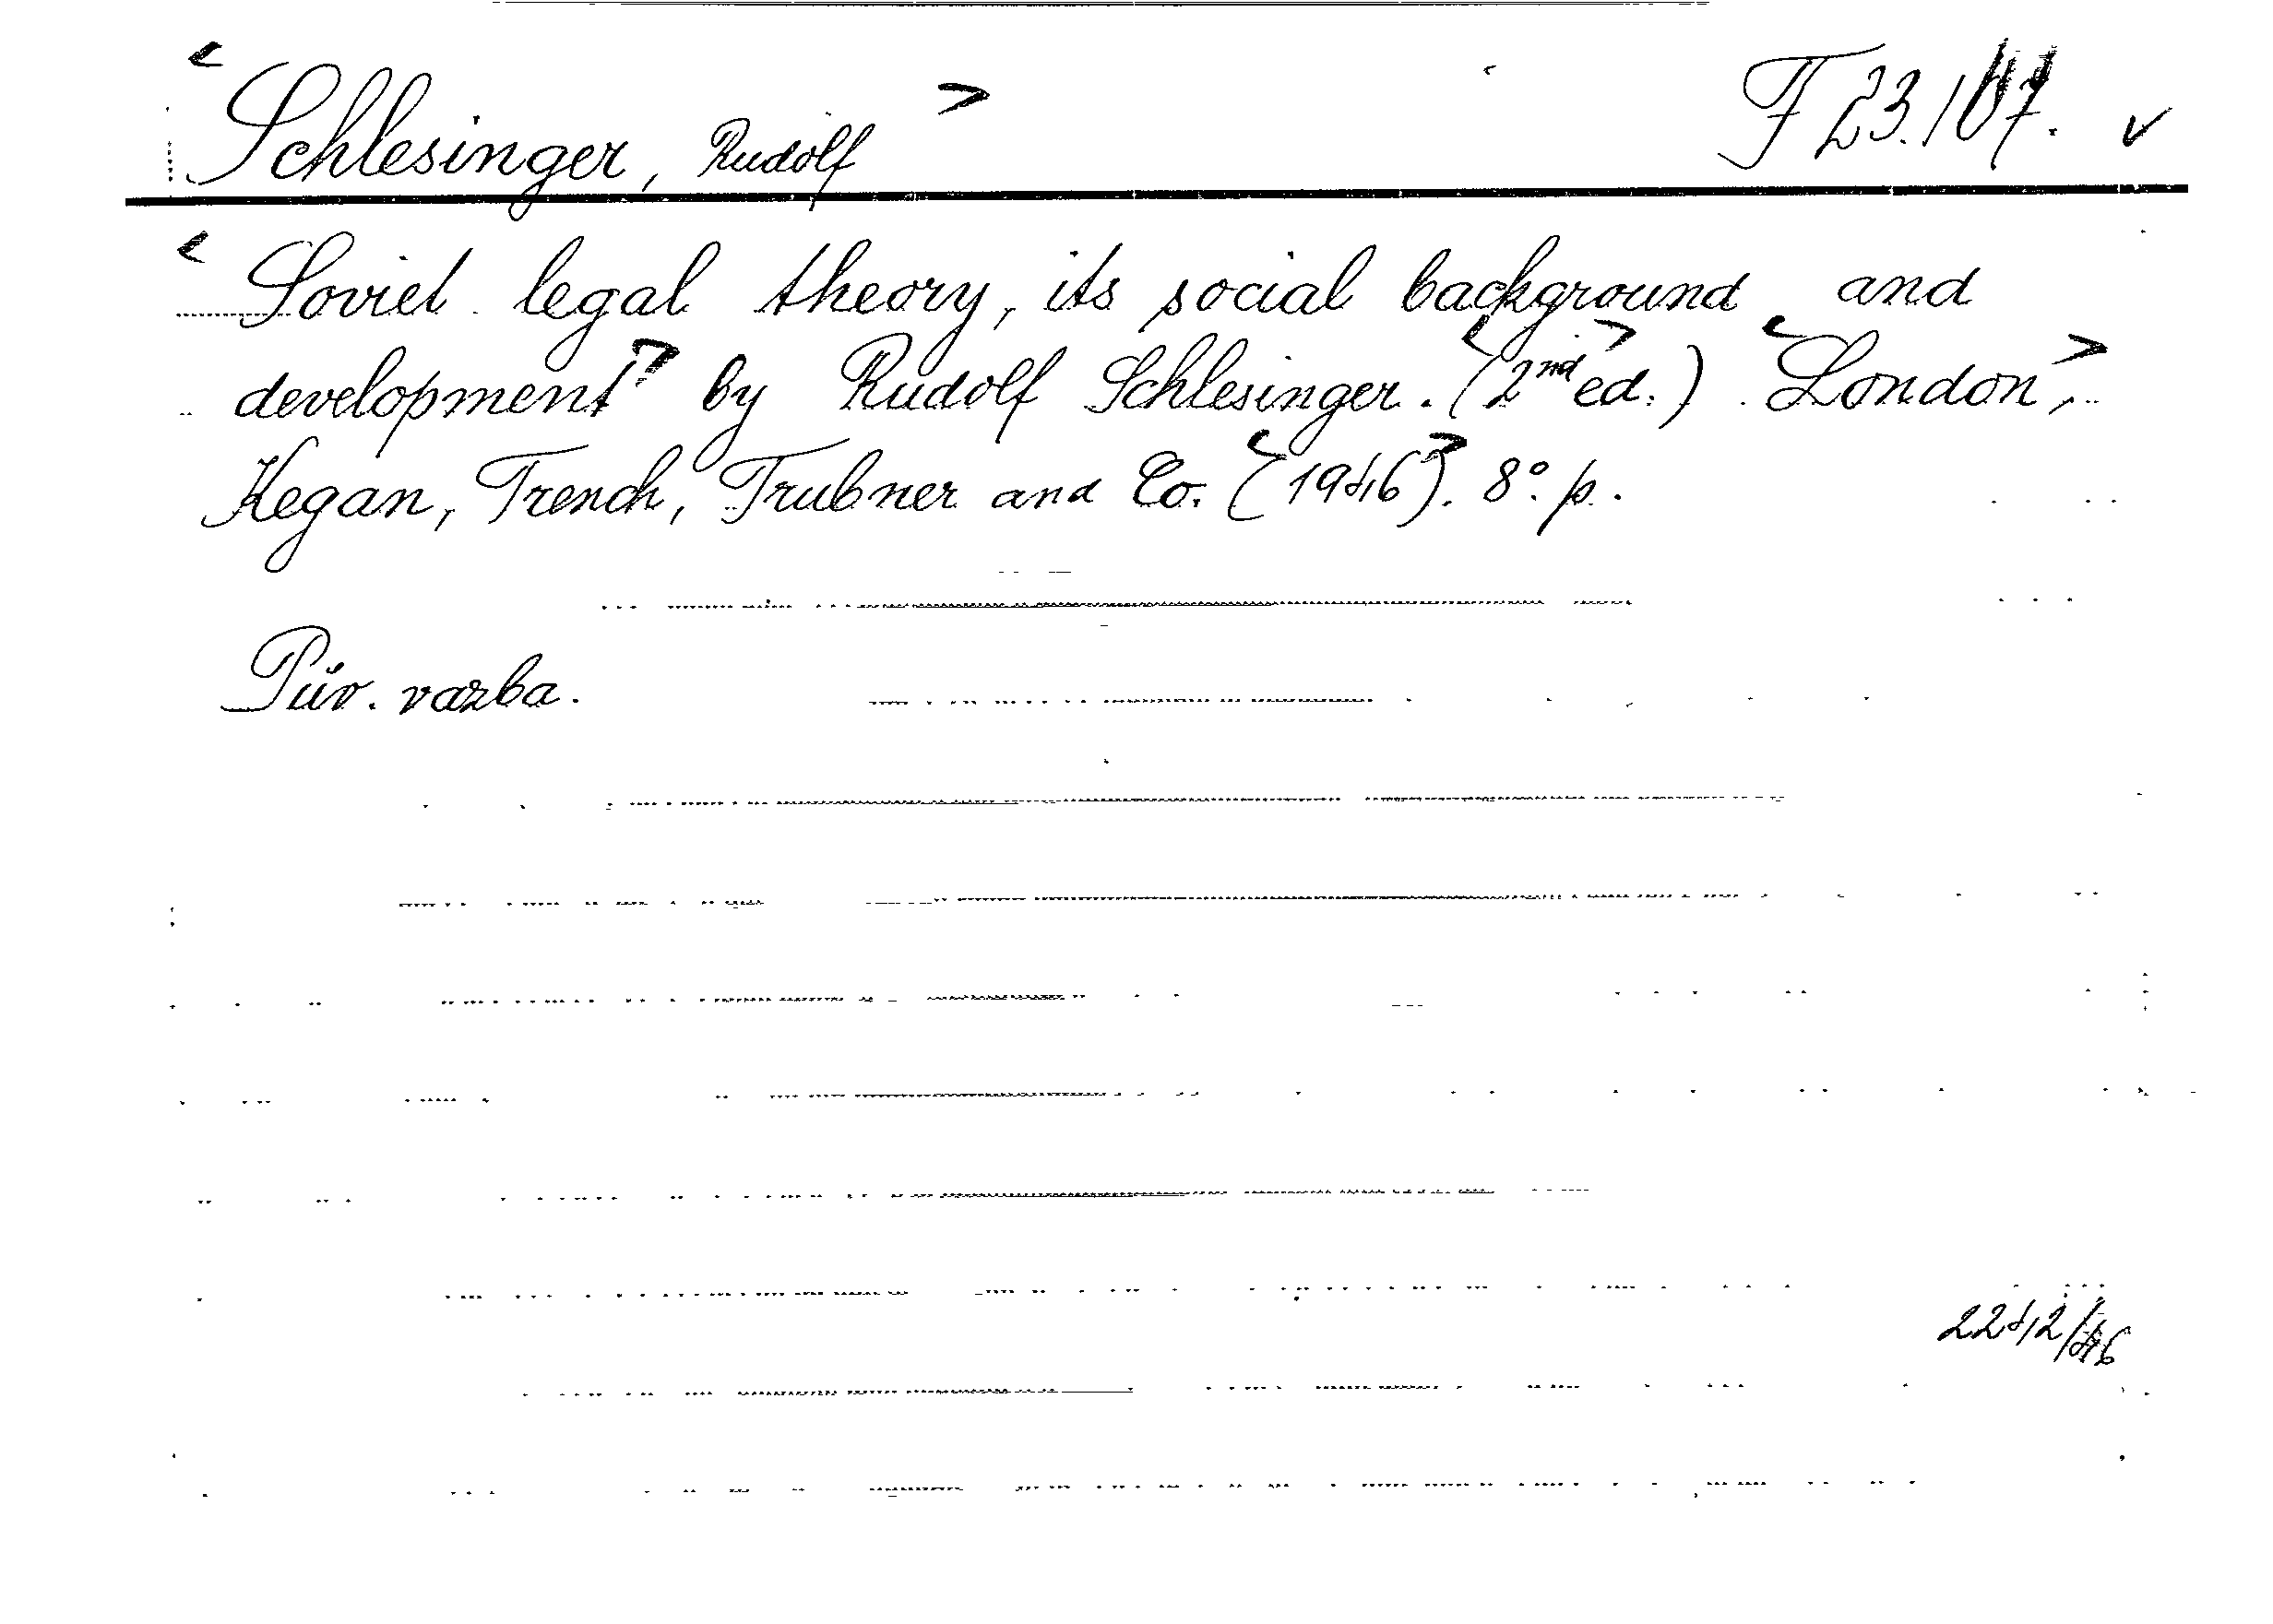 < Schlesinger, Rudolf > F 23.107. v
< Soviet legal theory, its social background and
development > by Rudolf Schlesinger. <(2nd> ed.) <London>,
Kegan, Trench, Trubner and Co. <(1946>). 8°. p.
Pův. vazba.
2242/46